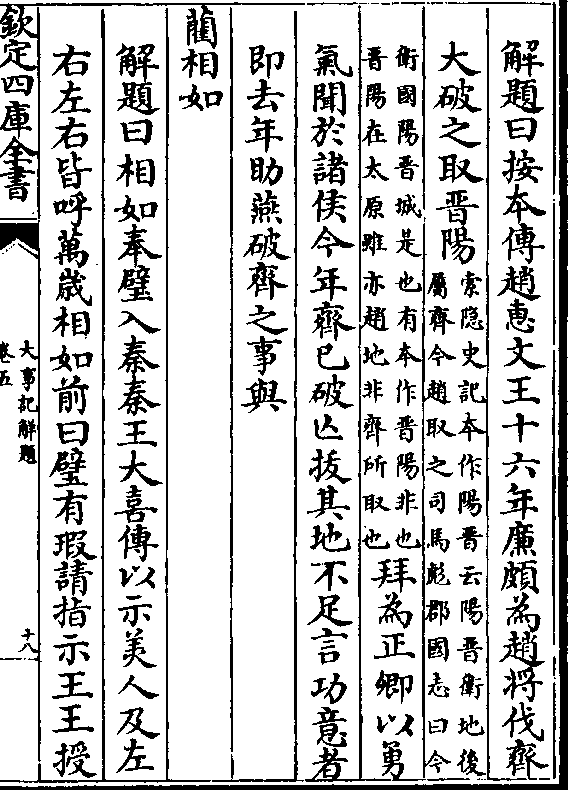 解題曰按本傳趙惠文王十六年廉頗為趙將伐齊
大破之取晉陽
索隐史記本作陽晋云陽晋衛地後
屬齊今趙取之司馬彪郡國志曰今
衛國陽晋城是也有本作晋陽非也
晋陽在太原雖亦趙地非齊所取也
拜為正卿以勇
氣聞於諸侯今年齊已破亡拔其地不足言功意者
即去年助燕破齊之事與
藺相如
解題曰相如奉璧入秦秦王大喜傳以示美人及左
右左右皆呼萬歲相如前曰璧有瑕請指示王王授
欽定四庫全書
大事記解題
卷五
十八